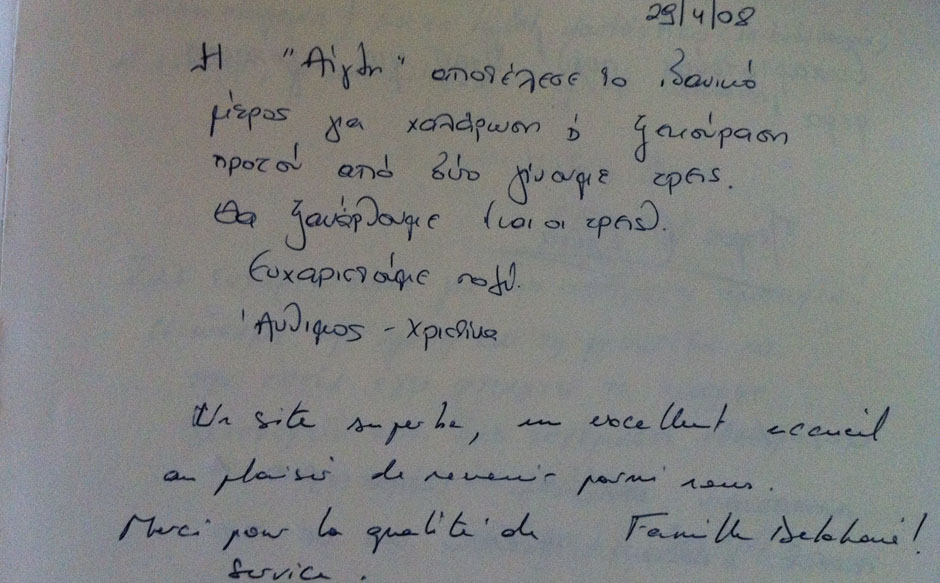 29/4/08
Η "Αίγλη" αποτέλεσε το ιδανικό
μέρος για χαλάρωση & ξεκούραση
προτού από δύο γίνουμε τρεις.
Θα ξανάρθουμε (και οι τρεις).
Ευχαριστούμε πολύ.
Άνθιμος - Χριστίνα
Un site superbe, un excellent accueil
au plaisir de revenir parmi vous.
Merci pour la qualité de Famille Delahaie!
service.